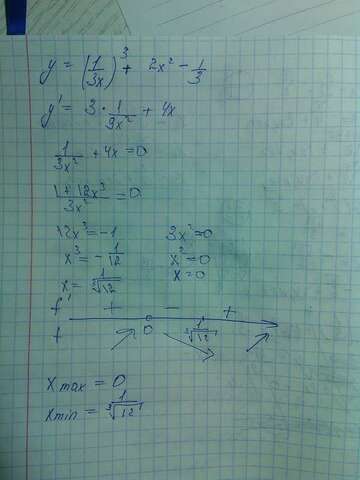 y = (1/3x)^3 + 2x² - 1/3
y' = 3 · 1/9x² + 4x
1/3x² + 4x = 0
1 + 12x³/3x² = 0
12x³ = -1 3x² = 0
x³ = - 1/12 x² = 0
x = 1/∛12 x = 0
f' + - +
f 0 1/∛12
x max = 0
x min = 1/∛12